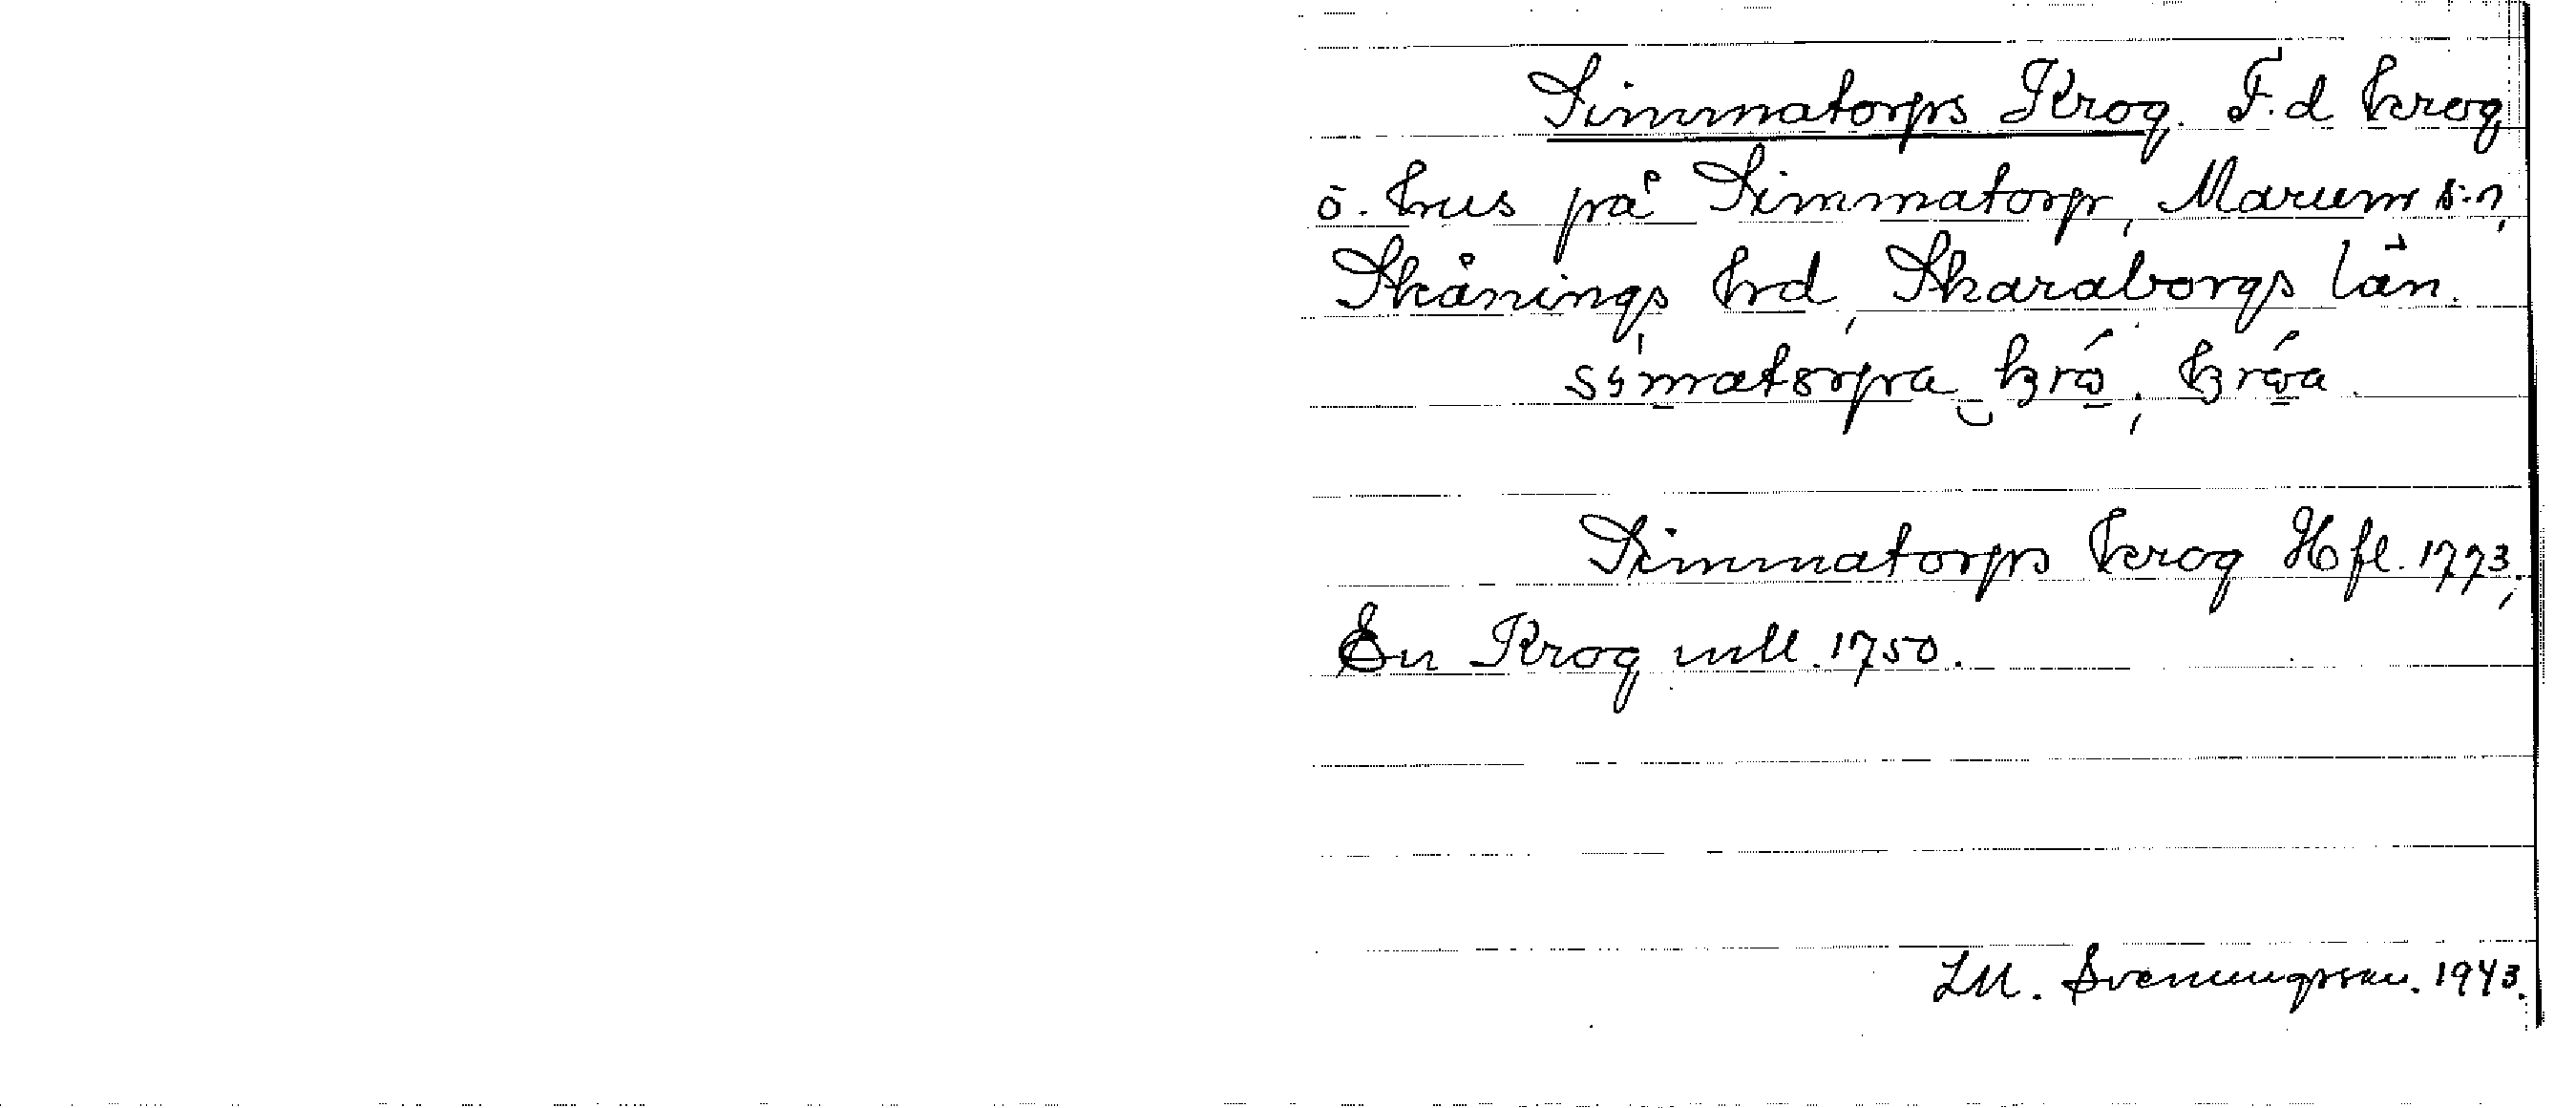 Simmatorps Krog. F.d krog
o. hus på Simmatorp, Marum s:n,
Skånings hd, Skaraborgs län.
Simmatorps krog Hfl. 1773,
En Krog mll. 1750.
LM. Svenungsson. 1943.